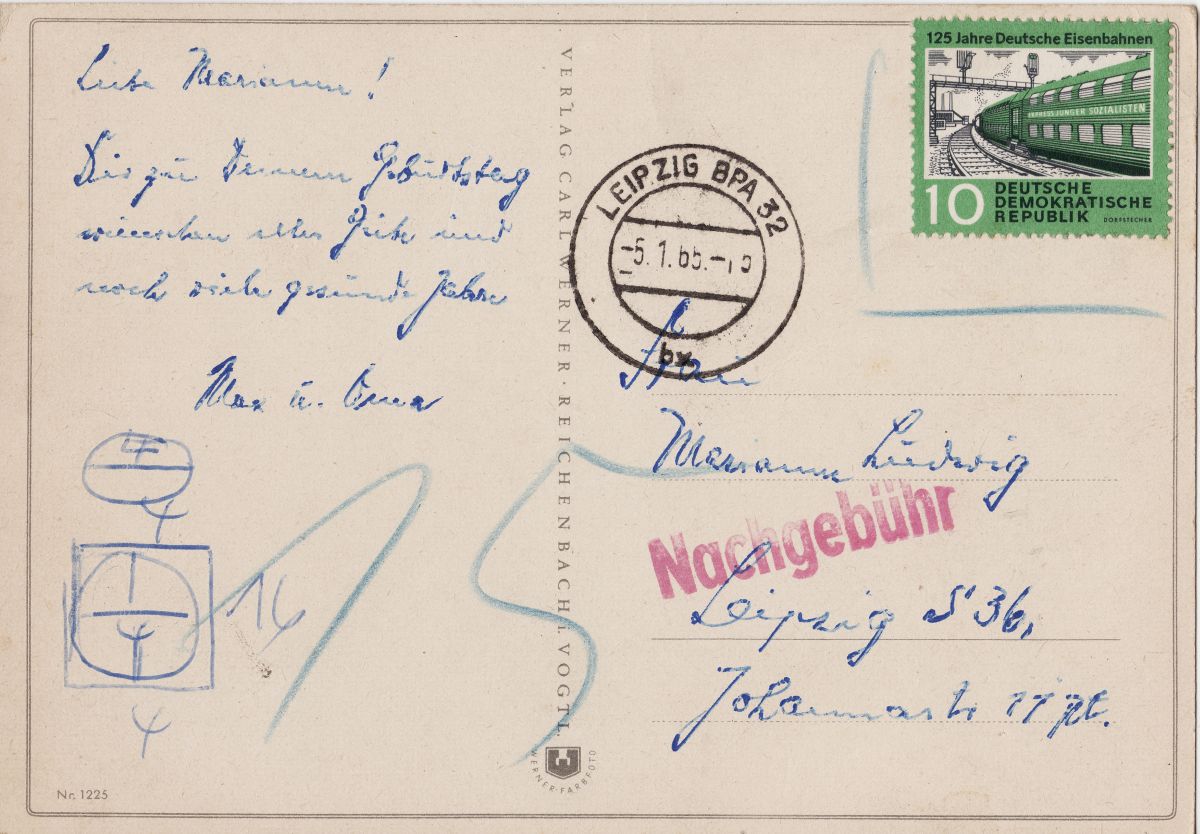 Liebe Marianne!
Dir zu Deinem Geburtstag
wünschen alles Gute und
noch viele gesunde Jahre
Max u. Oma
4
4
16
4
4
15
Nr. 1225
VERLAG CARL WERNER · REICHENBACH I. VOGTL.
WERNER-FARBFOTO
125 Jahre Deutsche Eisenbahnen
EXPRESS JUNGER SOZIALISTEN
10 DEUTSCHE
DEMOKRATISCHE
REPUBLIK DORFSTECHER
LEIPZIG BPA 32
-5.1.65.-
bx
Frau
Marianne Ludwig
Nachgebühr
Leipzig S 36,
11 pt.